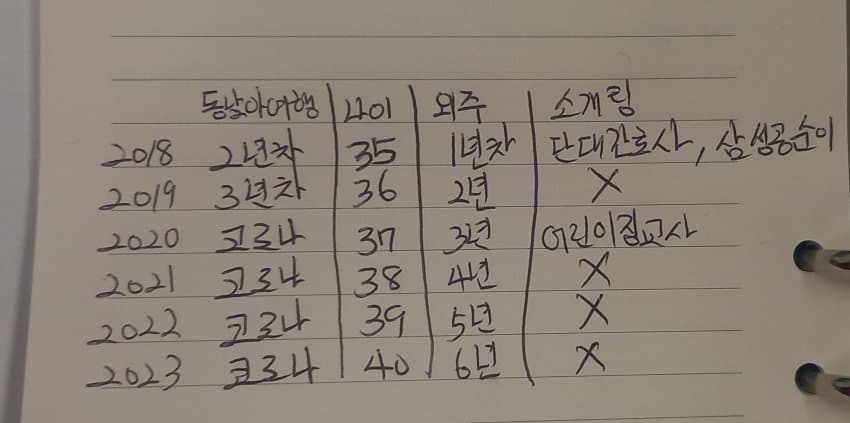 동남아여행 나이 외주 소개링
2018 2년차 35 1년차 단대간호사, 삼성공순이
2019 3년차 36 2년 X
2020 코로나 37 3년 어린이집교사
2021 코로나 38 4년 X
2022 코로나 39 5년 X
2023 코로나 40 6년 X